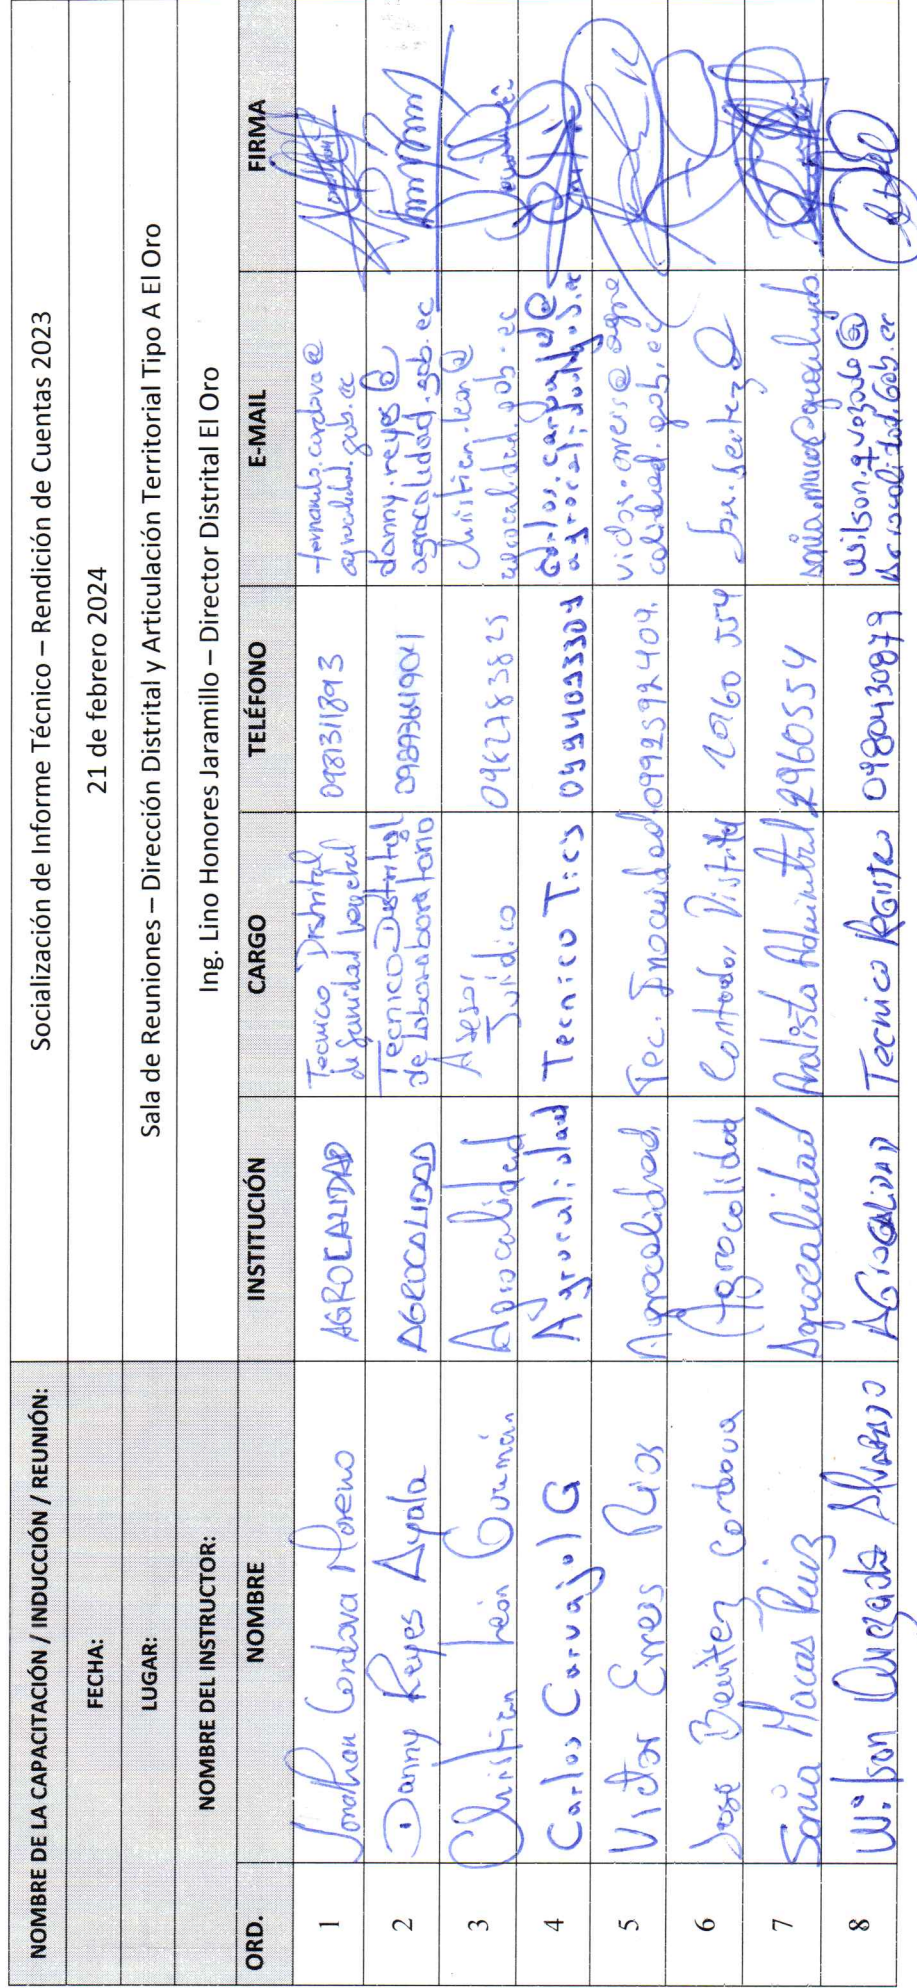 NOMBRE DE LA CAPACITACIÓN / INDUCCIÓN / REUNIÓN: Socialización de Informe Técnico – Rendición de Cuentas 2023
FECHA: 21 de febrero 2024
LUGAR: Sala de Reuniones – Dirección Distrital y Articulación Territorial Tipo A El Oro
NOMBRE DEL INSTRUCTOR: Ing. Lino Honores Jaramillo – Director Distrital El Oro
ORD. NOMBRE INSTITUCIÓN CARGO TELÉFONO E-MAIL FIRMA
1 Jonathan Cordova Moreno AGROCALIDAD Tecnico Distrital
de Sanidad Vegetal 0981311893
agrocalidad.gob.ec
2 Danny Reyes Ayala AGROCALIDAD Tecnico Distrital
de Laboraboratorio danny.reyes@
agrocalidad.gob.ec
3 Christian León Agrocalidad Asesor
Jurídico christian.leon@
agrocalidad.gob.ec
4 Carlos Carvajal G Agrocalidad Tecnico Tics
5 Victor Erreis Rios Agrocalidad Tec. Inocuidad 0992592404.
6 Jose Benitez Cordova Agrocalidad Contador Distrital
7 Sonia Macas Ruiz Agrocalidad Analista 2960554
8 Wilson Quezada Alvarado AGROCALIDAD Tecnico Registro 0980430879 wilson.quezada@
agrocalidad.gob.ec